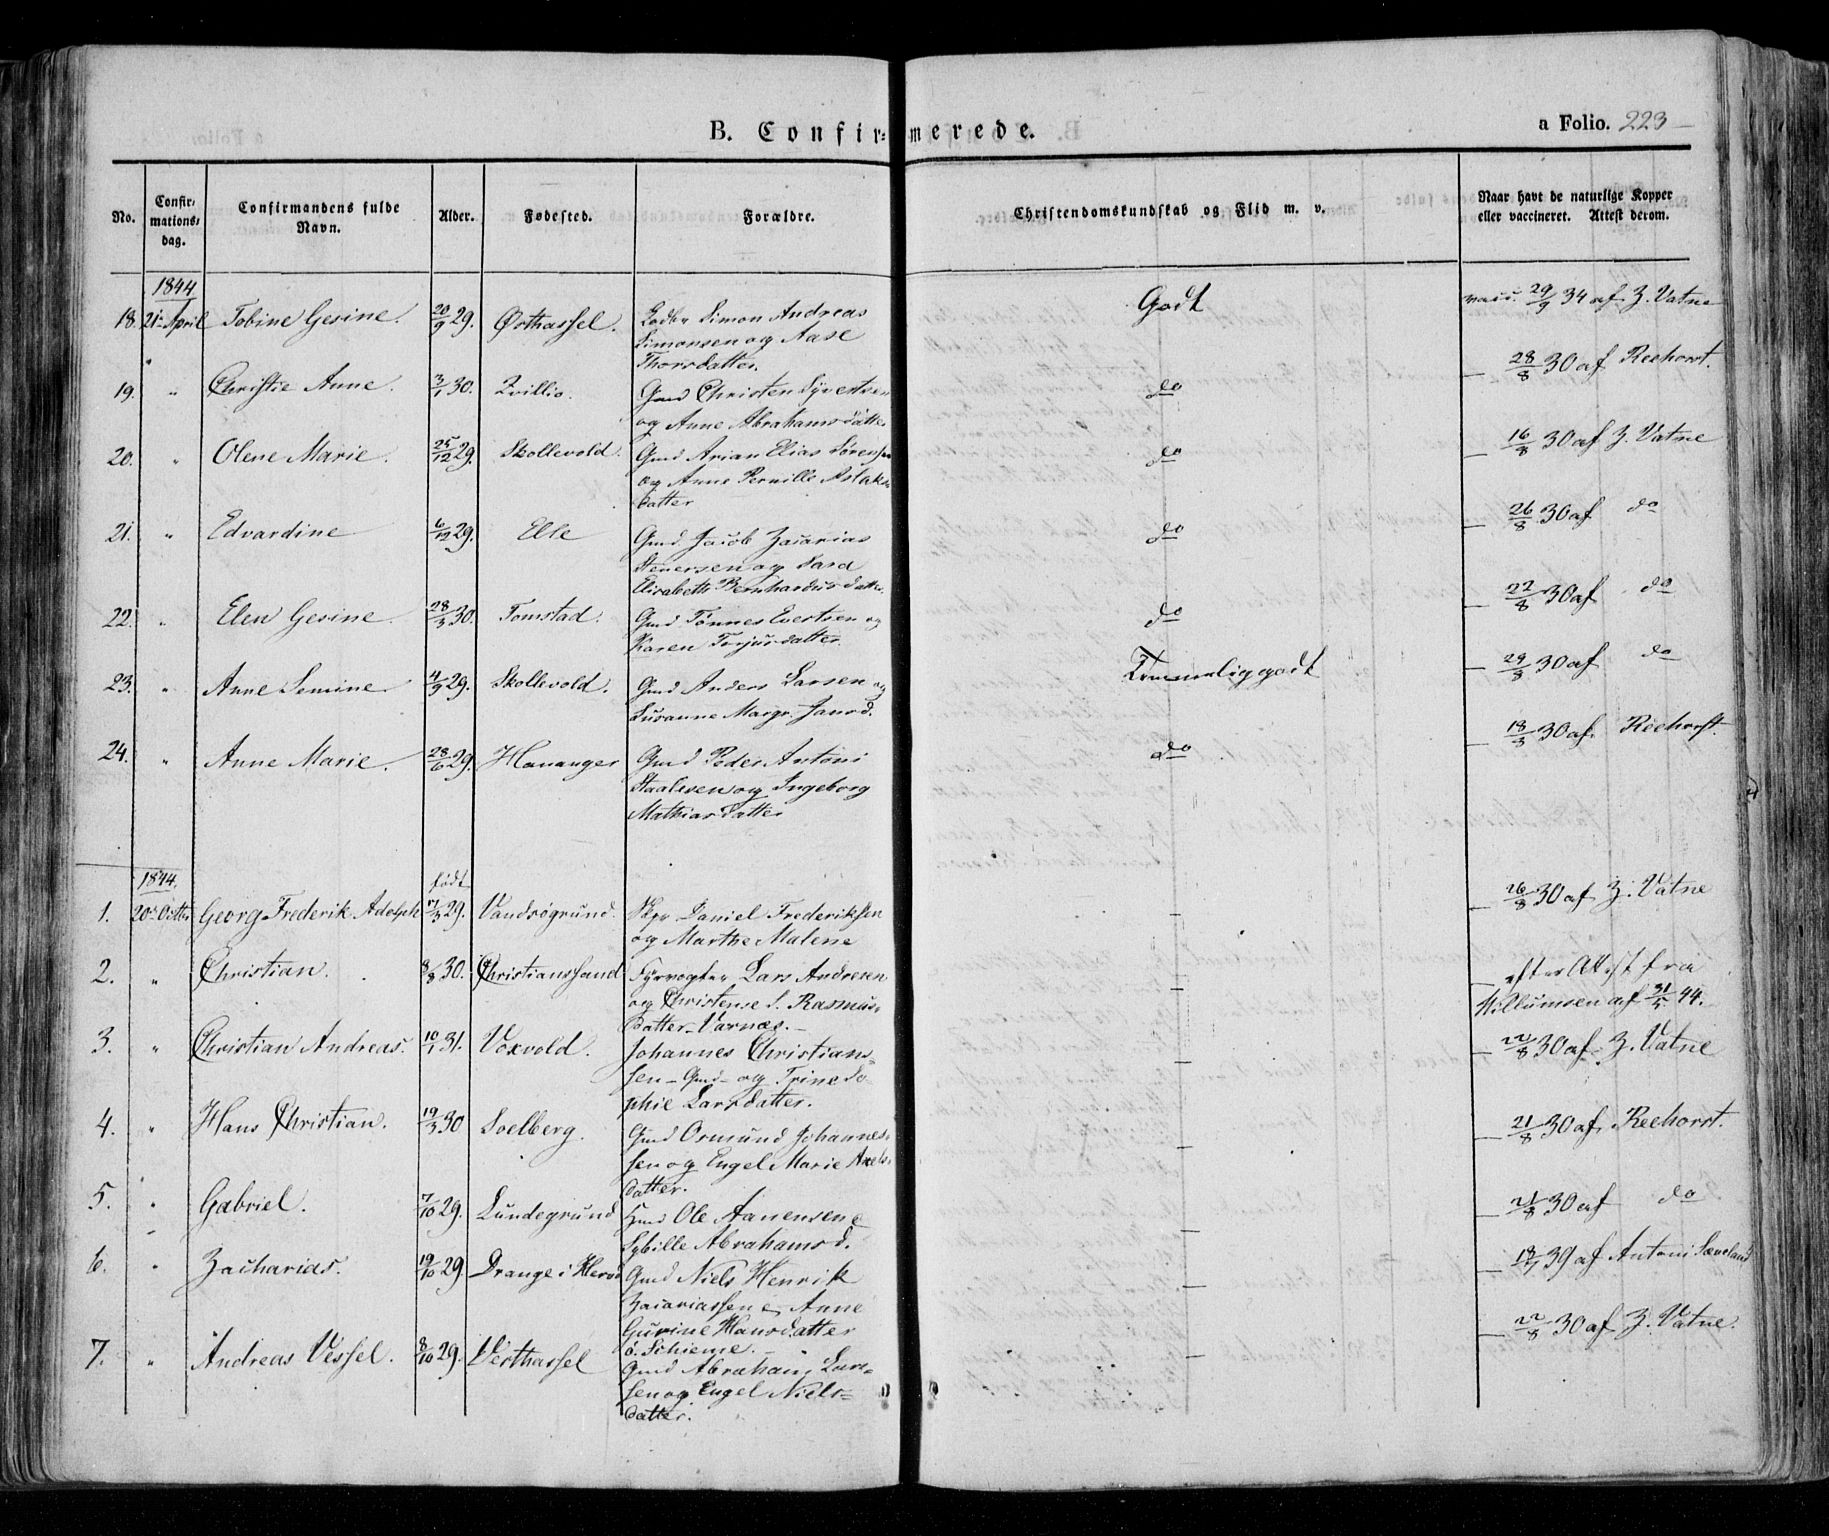 B. Confir= merede.
a Folio. 223
No.
Confir-
mations-
dag.
Confirmandens fulde
Navn.
Alder.
Fødested.
Forældre.
Christendomskundskab og Flid m. v.
Naar havt de naturlige Kopper
eller vaccineret. Attest derom.
1844
18. 21. April Tobine Gesine. 20/9 29. Østhassel. Simon Andreas Godt vacc. 29/9 34 af Z. Vatne
Simonsen og Aase
Thorsdatter.
19. " Christie Anne. 3/1 30. Gmd Christen Syvertsen do 28/8 30 af Reehorst.
og Anne Abrahamsdatter
20. " Olene Marie. 25/12 29. Skollevold. Gmd Arian Elias Sørensen do 16/8 30 af Z. Vatne
og Anne Pernille Aslaks-
datter
21. " Edvardine 6/12 29. Elle Gmd. Jacob Zacarias do 26/8 30 af do
Stenersen og Sara
Elisabeth Bernhardus datter.
22. " Elen Gesine 28/3 30. Tomstad. Gmd Tønnes Evertsen og do 22/8 30 af do
Karen Torjusdatter.
23. " Anne Semine 29. Skollevold. Gmd Anders Larsen og Temmelig godt 29/8 30 af do
Susanne Margr. Jansd.
24. " Anne Marie. 28/6 29. Hananger Gmd Peder Antoni do 18/3 30 af Reehorst.
Staalesen og Ingeborg
Mathiasdatter
1844. født
1. 20de Octbr Georg Frederik Adolph 29. Vandsøgrund. Daniel Frederiksen — 26/8 30 af Z. Vatne
og Marthe Malene
2. " Christian. 8/8 30. Christianssand Fyrvogter Lars Andresen — efter Attest fra
og Christense S. Rasmus- Willumsen af 31/5 44.
datter – Varnæs. –
3. " Christian Andreas. 10/1 31. Voxvold. Johannes Christian- — 22/8 30 af Z. Vatne
sen – Gmd – og Trine So-
phie Larsdatter.
4. " Hans Christian. 19/3 30 Soelberg. Gmd Osmund Johannes- — 21/8 30 af Reehorst.
sen og Engel Marie Axels-
datter.
5. " Gabriel. 7/10 29. Lundegrund Hmd Ole Aanensen & — 21/8 30 af do
Sybille Abrahamsd.
6. " Zacharias. 19/10 29. Drange i Gmd Niels Henrik — 39 af Antoni
Zacariassen & Anne
Gurine Hansdatter
7. " Andreas Vessel. 8/10 29. Vesthassel Gmd Abraham Lar- — 22/8 30 af Z. Vatne.
sen og Engel Niels-
datter.